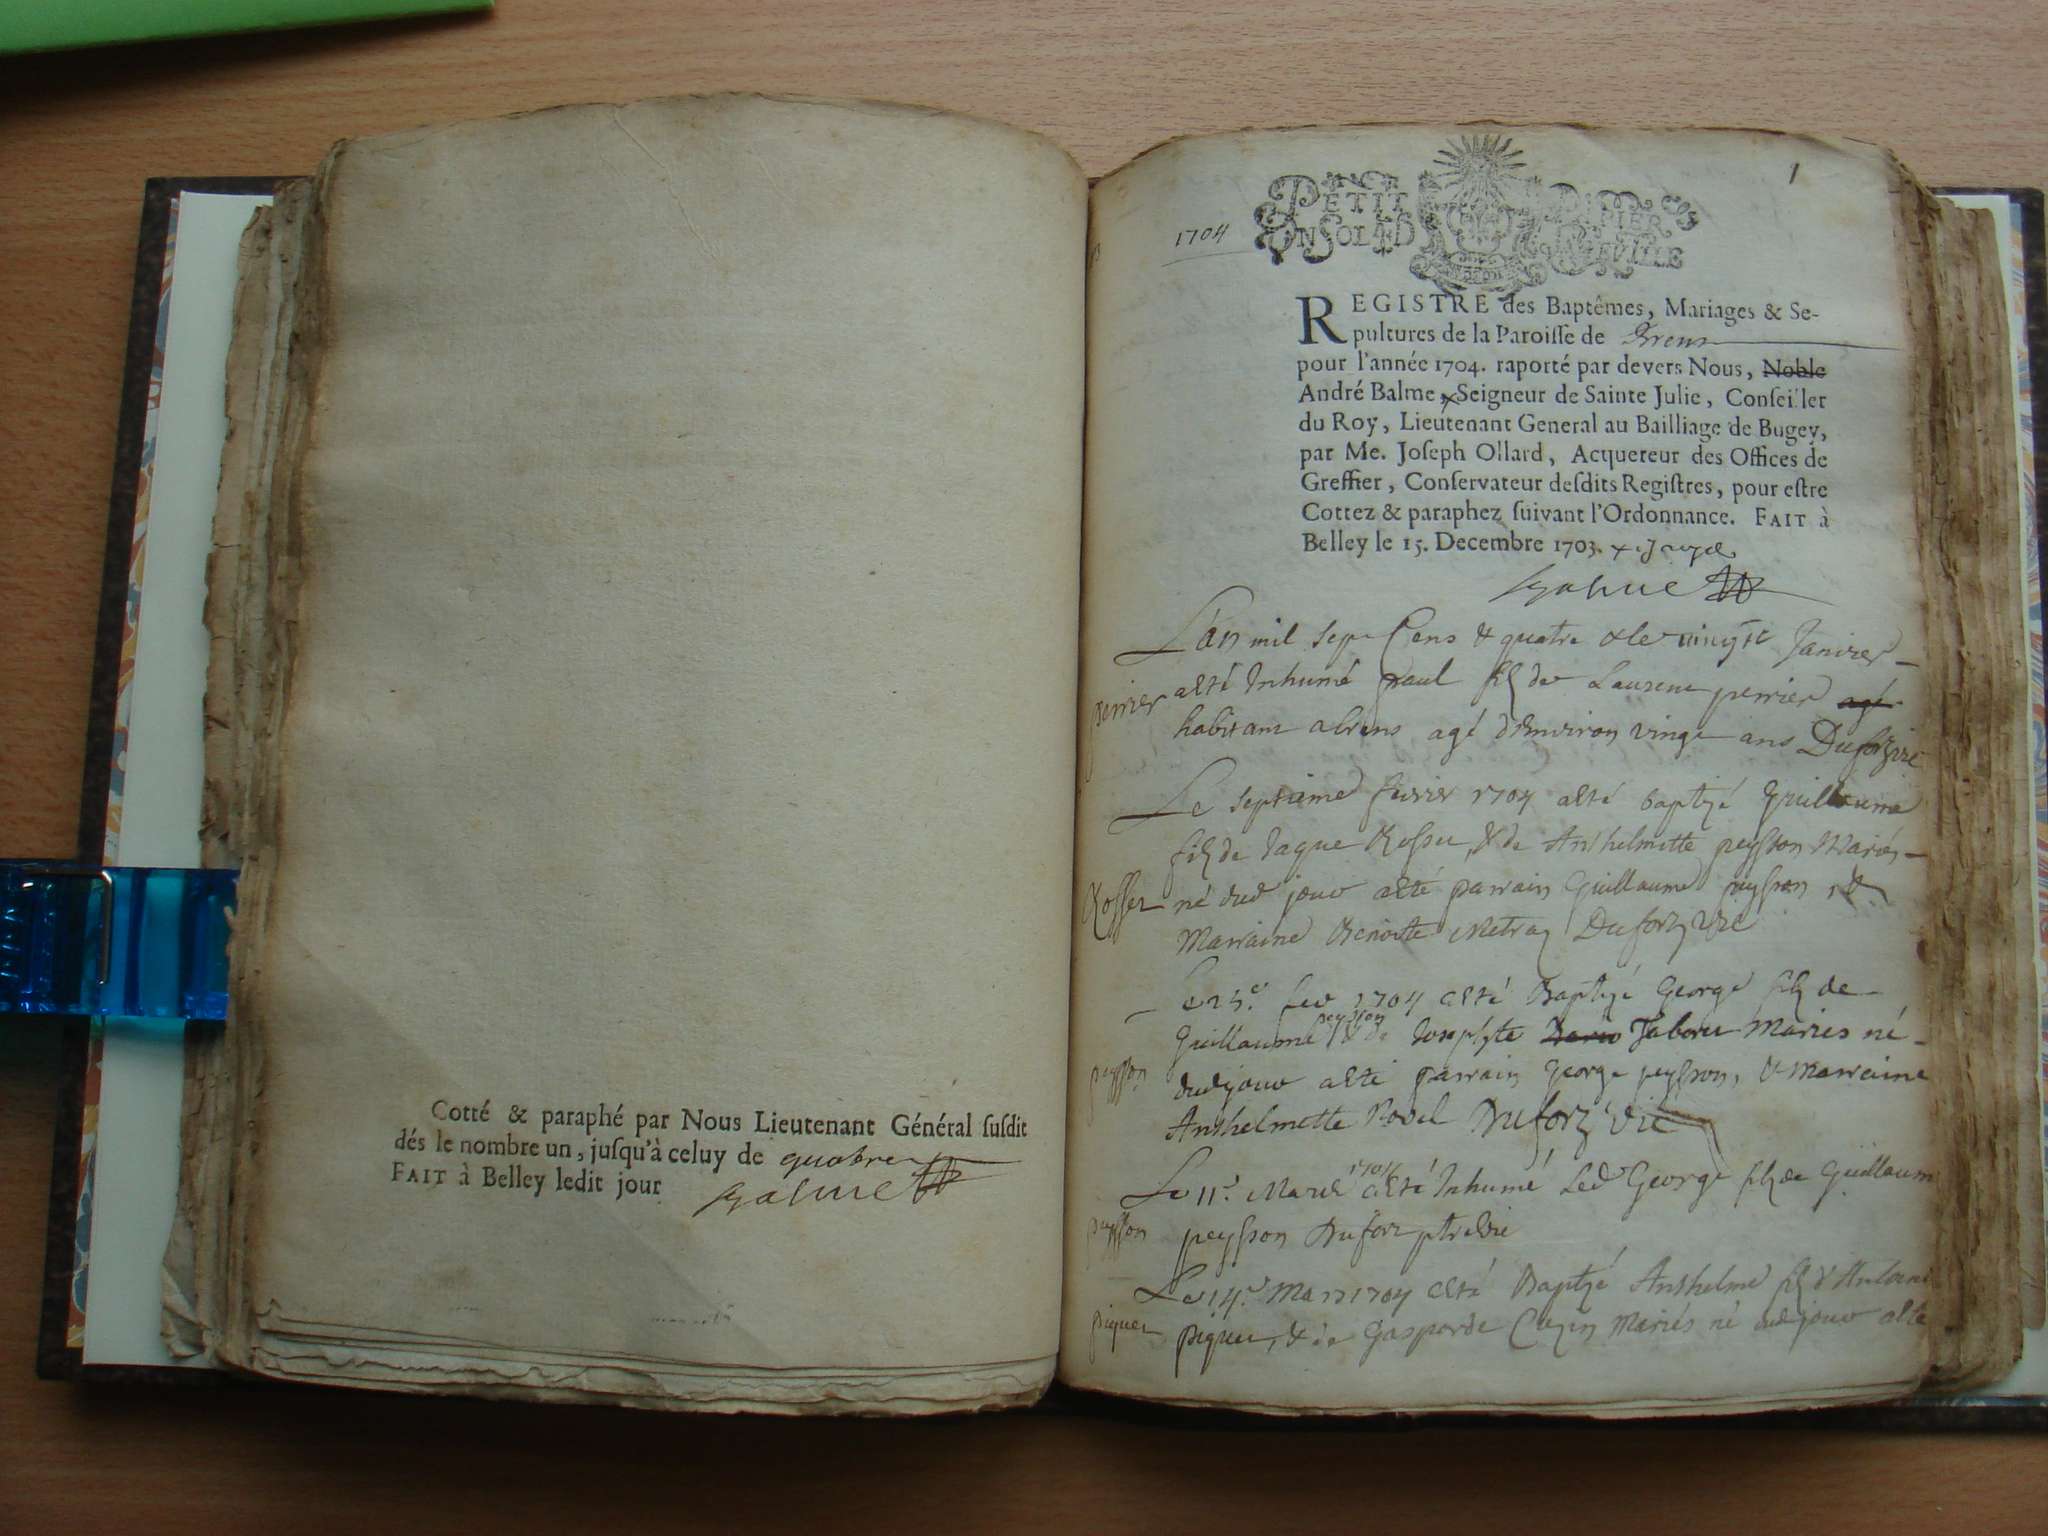 Cotté & paraphé par Nous Lieutenant Général susdit
dés le nombre un, jusqu'à celuy de quatre
FAIT à Belley ledit jour
1
1704
PETIT PAPIER
REGISTRE des Baptêmes, Mariages & Se-
pultures de la Paroisse de Brens
pour l'année 1704. raporté par devers Nous, Noble
André Balme, Seigneur de Sainte Julie, Conseiller
du Roy, Lieutenant General au Bailliage de Bugey,
par Me. Joseph Ollard, Acquereur des Offices de
Greffier, Conservateur desdits Registres, pour estre
Cottez & paraphez suivant l'Ordonnance. FAIT à
Belley le 15. Decembre 1703.
L'an mil sept Cens & quatre & le vingt Janvier
perrier
a esté Inhumé paul filz de Laurent perrier agé
habitant a brens agé d'Environ vingt ans Duforz vic
Le septieme fevrier 1704 a esté baptizé Guillaume
filz de Jaque Rosset, & de Anthelmette peysson Mariés
Rosset
né dud jour a esté parrain Guillaume peysson, &
Marraine Benoite Metraz Duforz vic
fev 1704 a esté Baptizé George filz de
Guillaume peysson & de Josephte Tabouret Mariés né
peysson
dud jour a esté parrain George peysson, & marraine
Anthelmette Duforz vic
Le 11e Mars 1704 a esté Inhumé Led George filz de Guillaume
peysson
peysson Duforz ptre vic
Le 14e Mars 1704 a esté Baptizé Anthelme filz d'Antoine
piquet
piquet, & de Gasparde Mariés né dud jour a esté